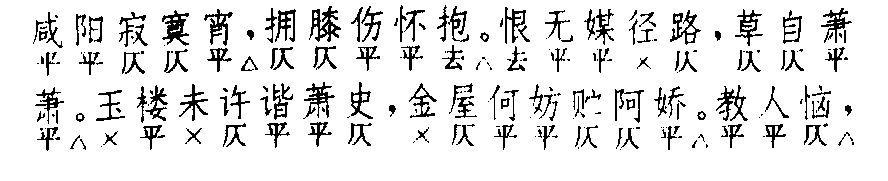 咸阳寂寞宵，拥膝伤怀抱。恨无媒径路，草自萧
平平仄仄平△仄仄平平去△去平平×仄仄仄平
萧。玉楼未许谐萧史，金屋何妨贮阿娇。教人恼，
平△×平×仄平平仄×仄平平仄仄平△平平仄△